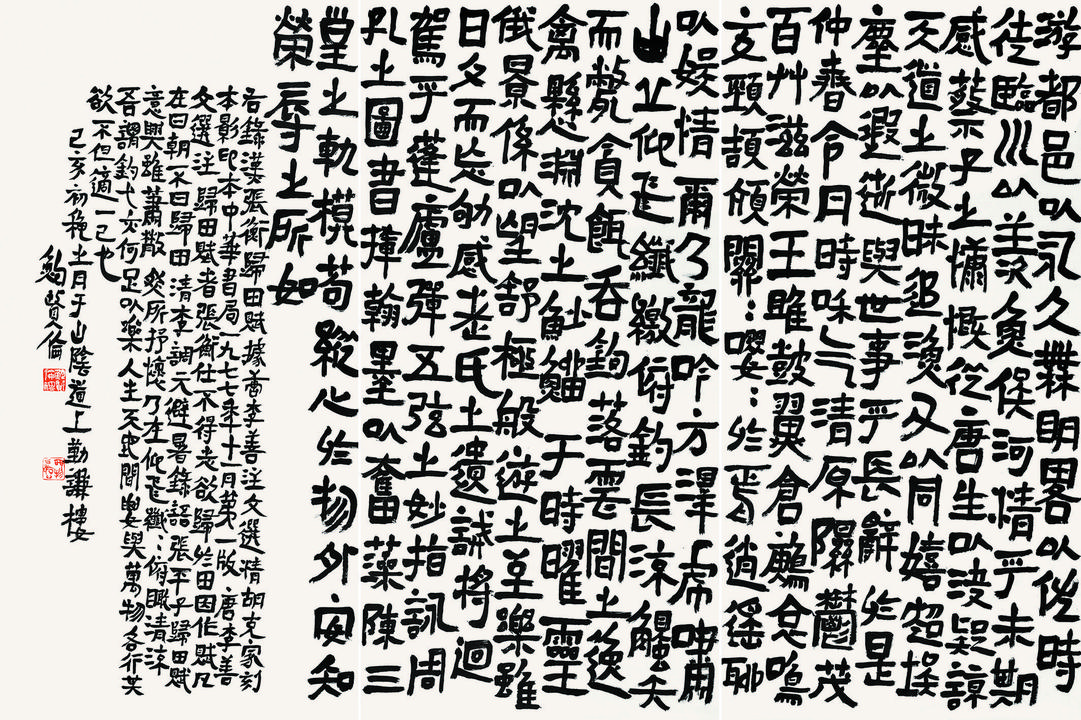 游都邑以永久無明略以佐時
徒臨川以羨魚俟河清乎未期
感蔡子之慷慨從唐生以決疑諒
天道之微昧追漁父以同嬉超埃
塵以遐逝與世事乎長辭於是
仲春令月時和氣清原隰鬱茂
百艸滋榮王雎鼓翼倉鶊哀鳴
交頸頡頏關〻嚶〻於焉逍遙聊
以娛情爾乃龍吟方澤虎嘯
山丘仰飛纖繳俯釣長流觸矢
而斃貪餌吞鉤落雲間之逸
禽懸淵沈之魦鰡于時曜靈
俄景係以望舒極般遊之至樂雖
日夕而忘劬感老氏之遺誡將迴
駕乎蓬廬彈五弦之妙指詠周
孔之圖書揮翰墨以奮藻陳三
皇之軌模苟縱心於物外安知
榮辱之所如
右錄漢張衡歸田賦據唐李善注文選清胡克家刻
本影印本中華書局一九七七年十一月第一版唐李善
文選注歸田賦者張衡仕不得志欲歸於田因作賦凡
在曰朝不曰歸田清李調元避暑錄語張平子歸田賦
意興雖蕭散然所抒懷乃在仰飛纖〻俯瞰清流
吾謂釣弋亦何足以樂人生天地間要與萬物各行其
欲不但適一己也
己亥初秋七月于山陰道上勤謙樓
鮑賢倫